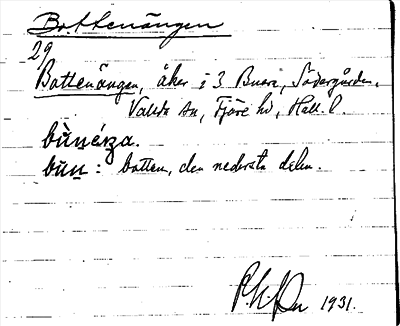 Bottenängen
29
Bottenängen, åker i 3 Buera, Södergården,
Valda sn, Fjäre hd, Hall. l.
bùnéŋa.
bùn : botten, den nedersta delen.
1931.